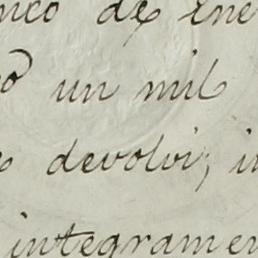 nco de ene
o un mil
e devolvi; i
integramen